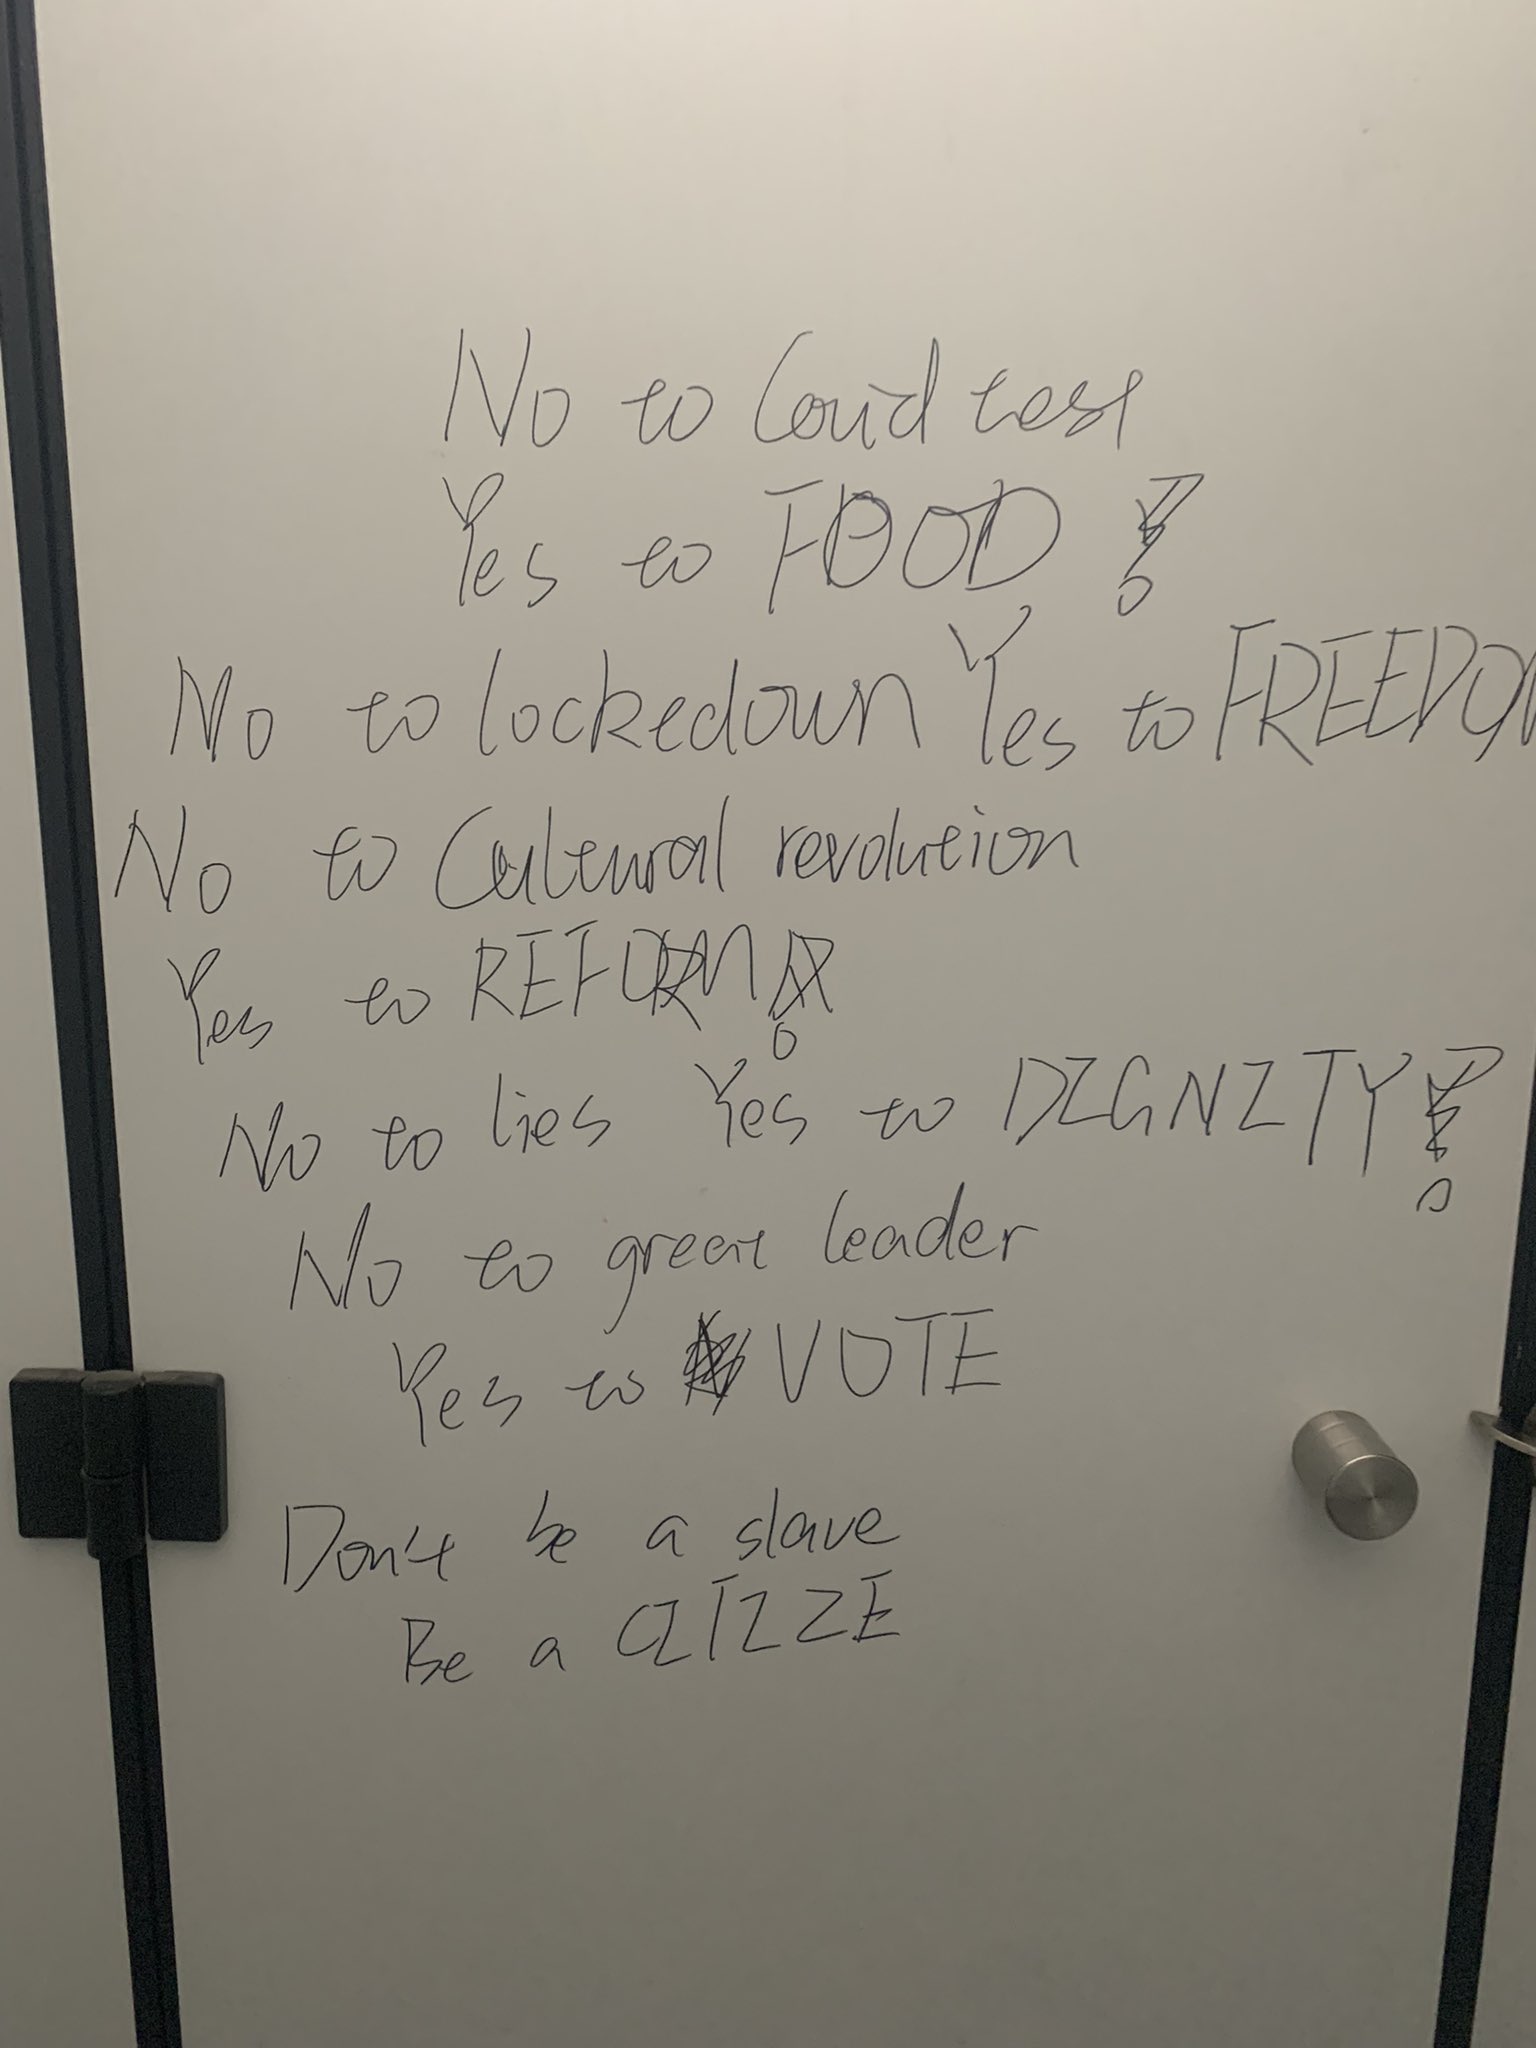 No to Covid test
Yes to FOOD !
No to lockedown Yes to FREEDOM
No to Cultural revolution
Yes to REFORM !
No to lies Yes to DIGNITY !
No to great leader
Yes to VOTE
Don't be a slave
Be a CITIZZE